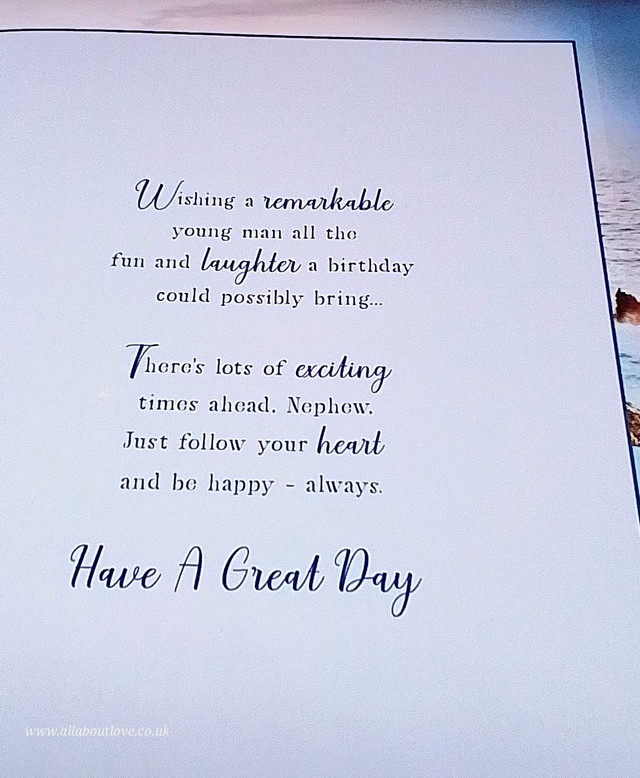 Wishing a remarkable
young man all the
fun and laughter a birthday
could possibly bring...
There's lots of exciting
times ahead. Nephew.
Just follow your heart
and be happy - always.
Have A Great Day
www.allaboutlove.co.uk